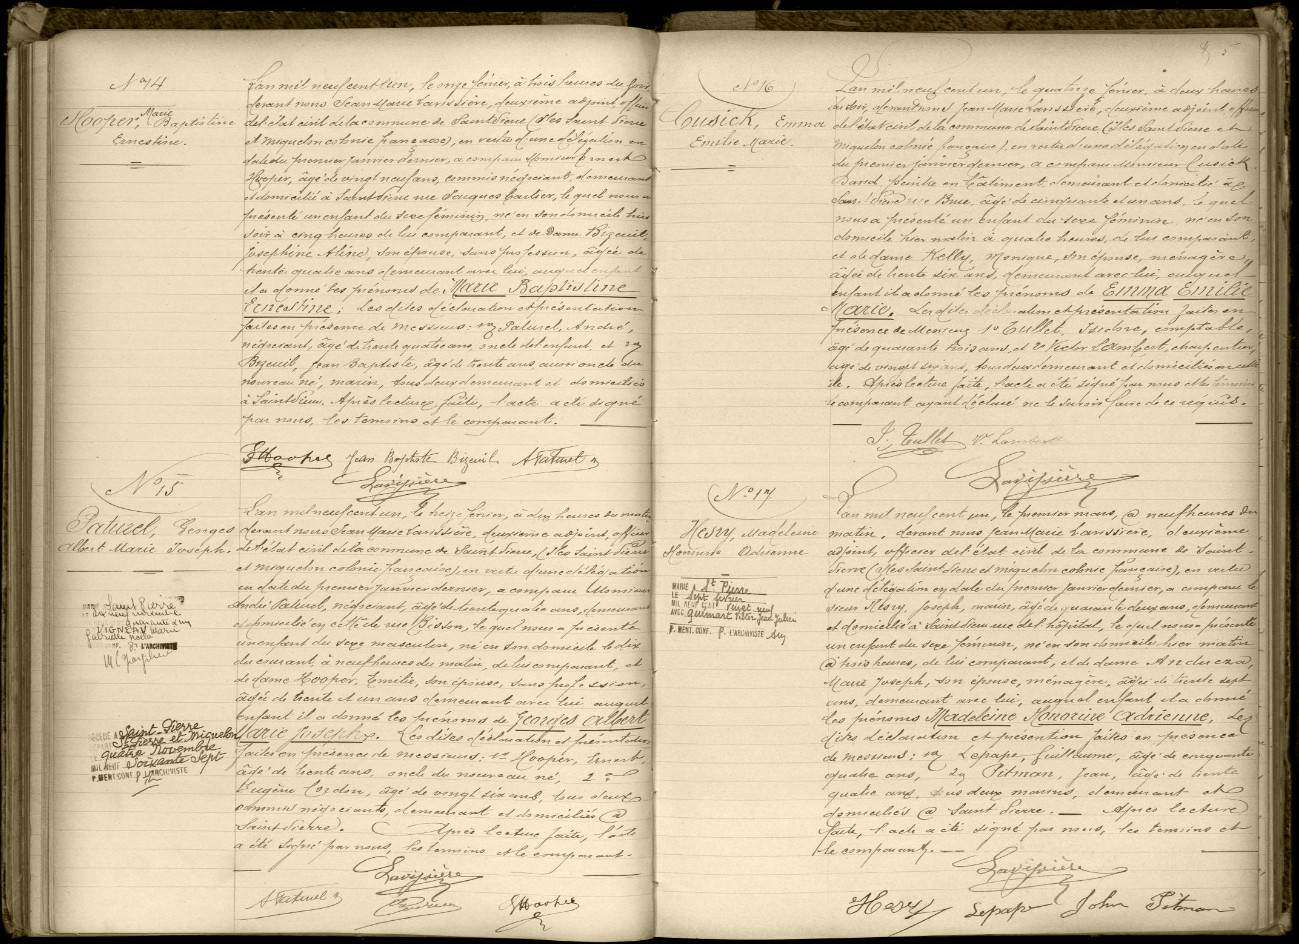 No 14
Hooper, Marie Baptistine
Ernestine.
L'an mil neuf cent un, le onze février, à trois heures du soir
devant nous Jean Marie Lavissière, deuxième adjoint officier
de l'état civil de la commune de Saint Pierre (Iles Saint Pierre
et Miquelon colonie française), en vertu d'une délégation en
date du premier janvier dernier, a comparu Monsieur Ernest
Hooper, âgé de vingt neuf ans, commis négociant, demeurant
et domicilié à Saint Pierre rue Jacques Cartier, le quel nous a
présenté un enfant du sexe féminin, né en son domicile
soir à cinq heures de lui comparant, et de Dame Bizeuil,
Joséphine Aline, son épouse, sans profession, âgée de
trente quatre ans demeurant avec lui, auquel enfant
il a donné les prénoms de Marie Baptistine
Ernestine; Les dites déclaration et présentation
faites en présence de messieurs: 1o Paturel, André,
négociant, âgé de trente quatre ans, oncle de l'enfant, et 2o
Bizeuil, Jean Baptiste, âgé de trente ans, aussi oncle du
nouveau né, marin, tous deux demeurant et domiciliés
à Saint Pierre. Après lecture faite, l'acte a été signé
par nous, les temoins et le comparant.
EHooper Jean Baptiste Bizeuil APaturel
Lavissière
No 15
Paturel, Georges
Albert Marie Joseph.
L'an mil neuf cent un, le treize février, à dix heures du matin
devant nous Jean Marie Lavissière, deuxième adjoint, officier
de l'état civil de la commune de Saint Pierre, (Iles Saint Pierre
et Miquelon colonie française), en vertu d'une délégation
en date du premier janvier dernier, a comparu Monsieur
André Paturel, négociant, âgé de trente quatre ans, demeurant
et domicilié en cette ville rue Bisson, le quel nous a présenté
un enfant du sexe masculin, né en son domicile le dix
du courant, à neuf heures du matin, de lui comparant, et
de dame Hooper, Emilie, son épouse, sans profession,
âgée de trente et un ans demeurant avec lui auquel
enfant il a donné les prénoms de Georges Albert
Marie Joseph. Les dites déclaration et présentation
faites en présence de messieurs: 1o Hooper, Ernest,
âgé de trente ans, oncle du nouveau né, 2o
Eugène Cordon, âgé de vingt six ans, tous deux
commis négociants, demeurant et domiciliés @
Saint Pierre. Après lecture faite, l'acte
a été signé par nous, les temoins et le comparant.
Lavissière
APaturel EHooper
Saint Pierre
quarante un
VIGNEAU Marie
P. L'ARCHIVISTE
DÉCÉDÉ A Saint-Pierre
St Pierre et Miquelon
LE quatre Novembre
MIL NEUF Soixante Sept
P. MENT. CONF. P. L'ARCHIVISTE
5
No 16
Cusick, Emma
Emilie Marie.
L'an mil neuf cent un, le quatorze février, à deux heures
du soir, devant nous Jean Marie Lavissière, deuxième adjoint officier
de l'état civil de la commune de Saint Pierre (Iles Saint Pierre et
Miquelon colonie française), en vertu d'une délégation en date
du premier janvier dernier, a comparu Monsieur Cusick
David, peintre en bâtiment, demeurant et domicilié à
Saint Pierre rue Brue, âgé de cinquante et un ans, le quel
nous a présenté un enfant du sexe féminin, né en son
domicile hier matin à quatre heures, de lui comparant,
et de dame Kelly, Monique, son épouse, ménagère,
âgée de trente six ans, demeurant avec lui, auquel
enfant il a donné les prénoms de Emma Emilie
Marie. Les dites déclaration et présentation faites en
présence de Messieurs 1o Tullet, Isidore, comptable,
âgé de quarante trois ans, et 2o Victor Lambert, charpentier,
âgé de vingt six ans, tous deux demeurant et domiciliés en cette
ville. Après lecture faite, l'acte a été signé par nous et les témoins
le comparant ayant déclaré ne le savoir faire de ce requis.
I. Tullet Vr Lambert
Lavissière
No 17
Hesry, Madeleine
Honorine Adrienne
L'an mil neuf cent un, le premier mars, @ neuf heures du
matin, devant nous Jean Marie Lavissière, deuxième
adjoint, officier de l'état civil de la commune de Saint-
Pierre (Iles Saint Pierre et Miquelon colonie française), en vertu
d'une délégation en date du premier janvier dernier, a comparu le
sieur Hesry, Joseph, marin, âgé de quarante deux ans, demeurant
et domicilié à Saint Pierre rue de l'hôpital, le quel nous a présenté
un enfant du sexe féminin, né en son domicile hier matin
@ trois heures, de lui comparant, et de dame Andueza,
Marie Joseph, son épouse, ménagère, âgée de trente sept
ans, demeurant avec lui, auquel enfant il a donné
les prénoms Madeleine Honorine Adrienne. Les
dites déclaration et présention faites en présence
de messieurs: 1o Lepape, Guillaume, âgé de cinquante
quatre ans, 2o Pitman, Jean, âgé de trente
quatre ans, tous deux marins, demeurant et
domiciliés @ Saint Pierre. — Après lecture
faite, l'acte a été signé par nous, les temoins et
le comparant. —
Lavissière
Hesry Lepape John Pitman
MARIÉ A St Pierre
LE sept février
MIL NEUF CENT vingt neuf
AVEC Guimart Victor Jean Julien
P. MENT. CONF. P. L'ARCHIVISTE